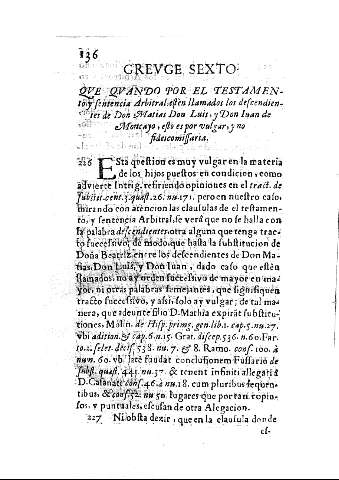 136
GREVGE SEXTO
QVE QVANDO POR EL TESTAMEN-
to, y sentencia Arbitral, estèn llamados los descendien-
tes de Don Matias Don Luis, y Don Iuan de
Moncayo, esto es por vulgar, y no
fideicomissaria.
226 ESta question es muy vulgar en la materia
de los hijos puestos en condicion, como
advierte Intrig. refiriendo opiniones en el tract. de
substit. cent. 3. quæst. 26. nu. 171. pero en nuestro caso
mirando con atencion las clausulas de el testamen-
to, y sentencia Arbitral, se verà que no se halla con
la palabra descendientes, otra alguna que tenga trac-
to sucessivo; de modo, que hasta la substitucion de
Doña Beatriz entre los descendientes de Don Ma-
tias, Don Luis, y Don Iuan, dado caso que estèn
llamados no ay orden sucessivo de mayor en ma-
yor, ni otras palabras semejantes, que signifiquen
tracto sucessivo, y assi, solo ay vulgar; de tal ma-
nera, que adeunte filio D. Mathia expirat substitu-
tiones. Molin. de Hisp. primg. gen. lib. 1. cap. 5. nu. 27.
vbi adition. & cap. 6. n. 15. Grat. discep. 536. n. 60. Far.
to. 2. select. decis. 538. nu. 7. & 8. Ramo. cons. 100. à
num. 60. vbi latè laudat conclusionem Fussario de
subst. quæst. 441. nu. 37. & tenent infiniti allegati à
D. Calanate cons. 46. à nu. 18. cum pluribus sequen-
tibus, & cons. 52. nu. 50. lugares que por tan copio-
sos, y puntuales, escusan de otra Alegacion.
227 Ni obsta dezir, que en la clausula donde
es-